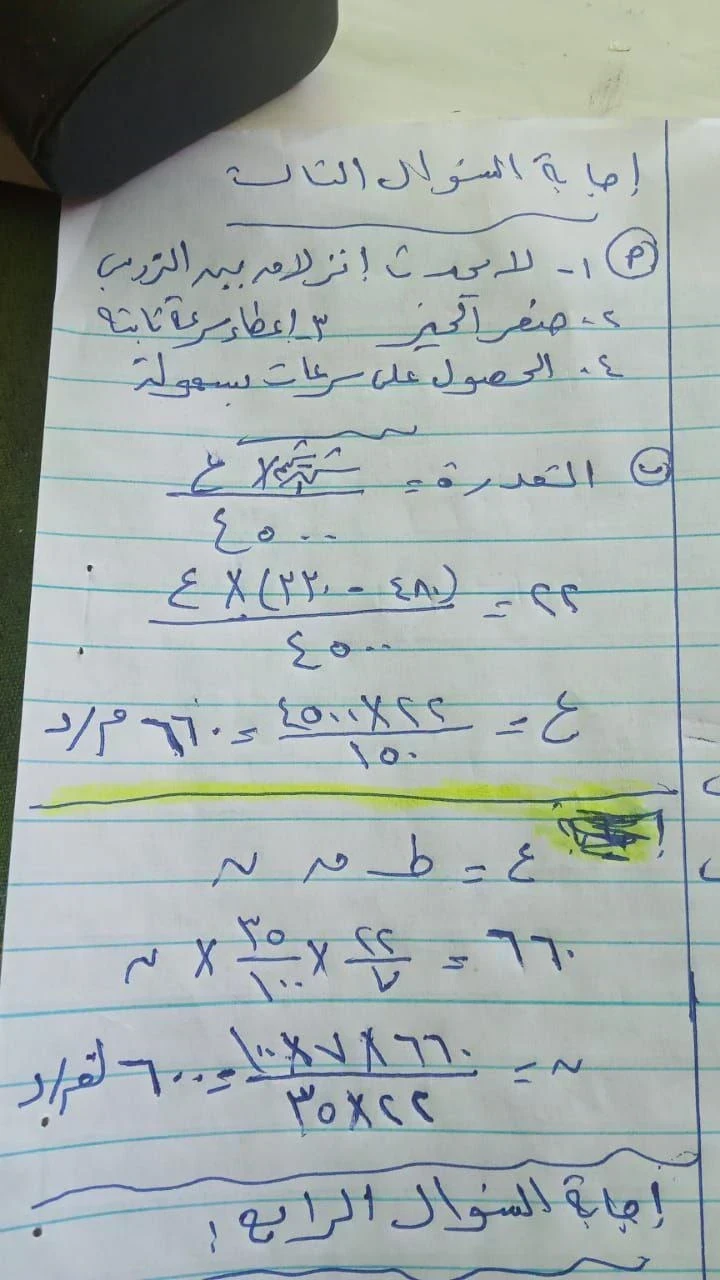 إجابة السؤال الثالث
(أ) ١- لا يحدث إنزلاق بين التروس
٢- صغر الحيز ٣- إعطاء سرعة ثابتة
٤- الحصول على سرعات بسهولة
(ب) القدرة = × ع
٤٥٠٠
٢٢ = (٤٨٠ - ٣٣٠) × ع
٤٥٠٠
ع = ٢٢×٤٥٠٠ = ٦٦٠ م/د
١٥٠
ع = ط ق ن
٦٦٠ = ٢٢/٧ × ٣٥/١٠٠ × ن
ن = ٦٦٠×٧×١٠٠ = ٦٠٠ لفة/د
٢٢×٣٥
إجابة السؤال الرابع :